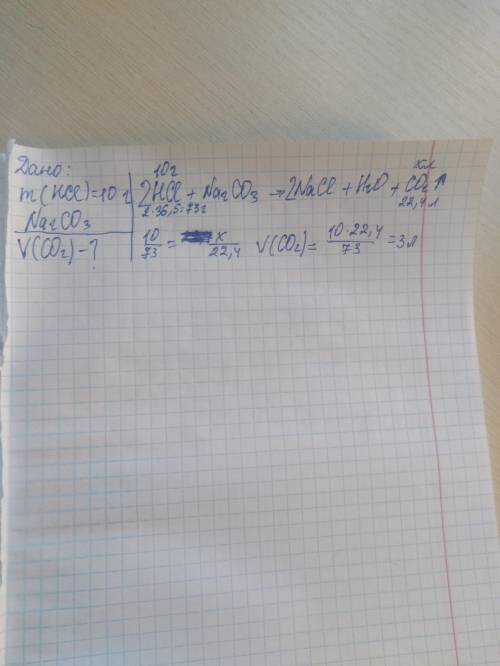 Дано:
m(HCl)=10 г
Na2CO3
V(CO2)-?
10г хл
2HCl + Na2CO3 → 2NaCl + H2O + CO2↑
2·36,5=73г 22,4 л
10/73 = x/22,4 V(CO2)= 10·22,4/73 =3л